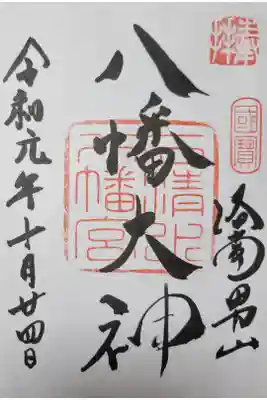 奉拝
國寶
洛南男山
八幡大神
石清水八幡宮
令和元年十月廿四日